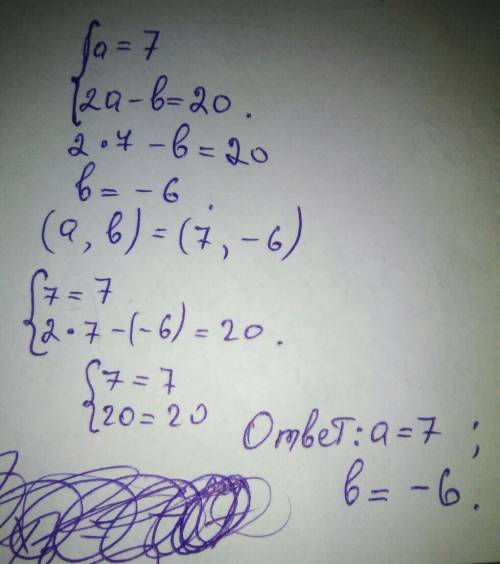 {a = 7
{2a - b = 20.
2 • 7 - b = 20
b = - 6.
(a, b) = (7, -6)
{7 = 7
{2 • 7 - (-6) = 20.
{7 = 7
{20 = 20
Ответ: a = 7 ;
b = - 6.